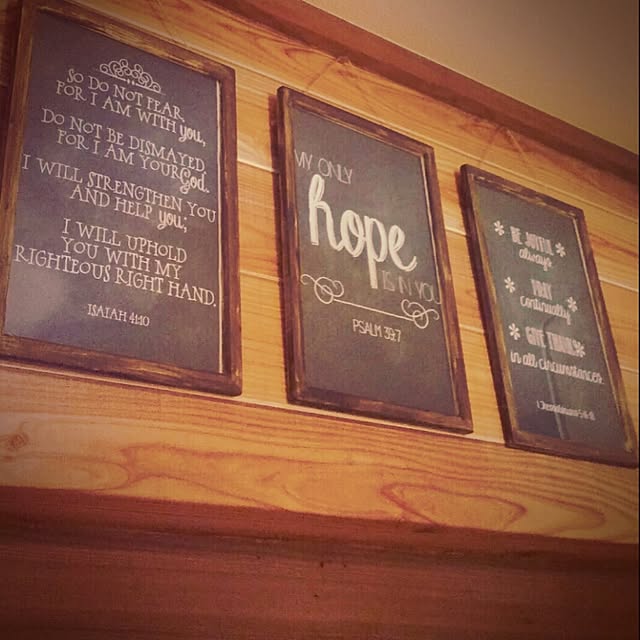 SO DO NOT FEAR,
FOR I AM WITH you,
DO NOT BE DISMAYED
FOR I AM YOUR God.
I WILL STRENGTHEN YOU
AND HELP you,
I WILL UPHOLD
YOU WITH MY
RIGHTEOUS RIGHT HAND.
ISAIAH 41:10
MY ONLY
hope
IS IN YOU
PSALM 39:7
BE JOYFUL
always
PRAY
continually
GIVE THANKS
in all circumstances.